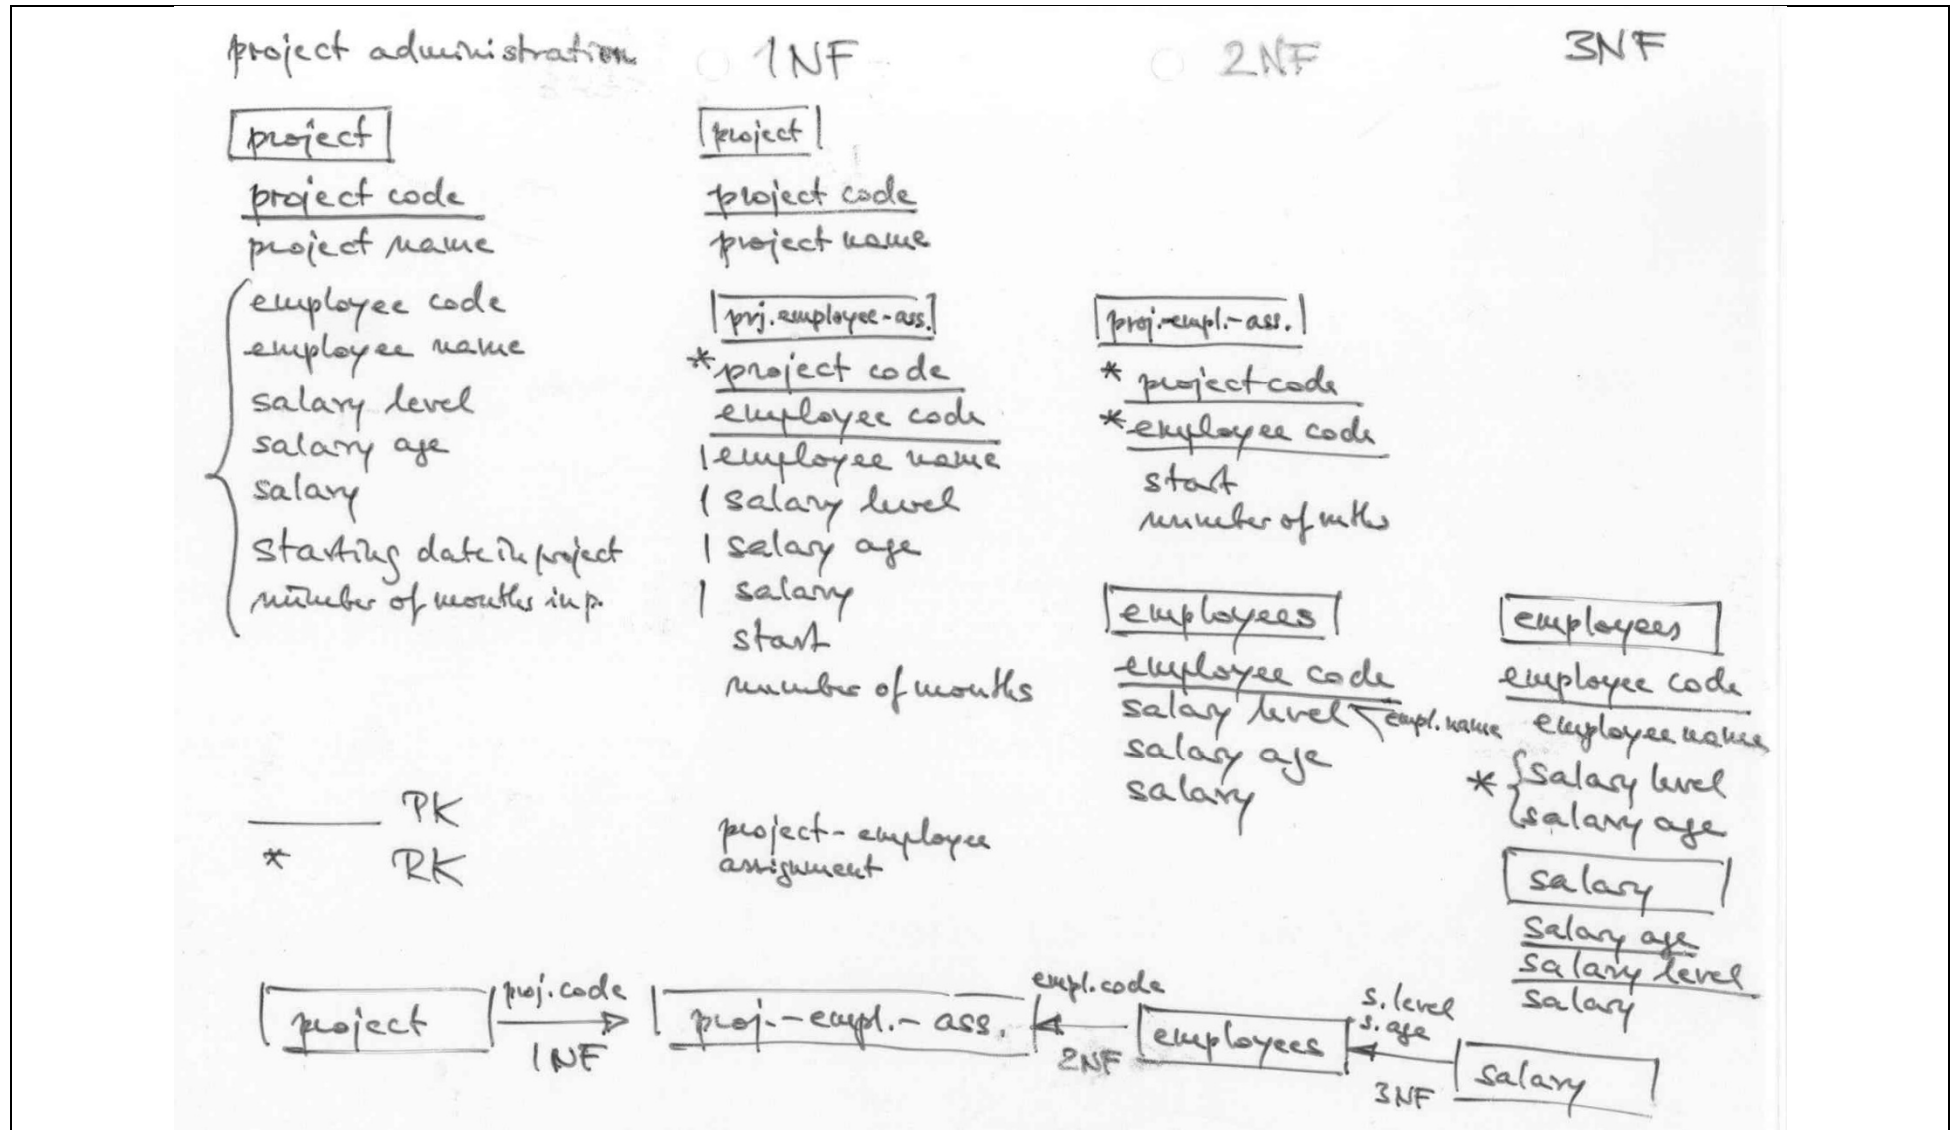 project administration
1NF
2NF
3NF
project
project code
project name
employee code
employee name
salary level
salary age
salary
starting date in project
number of months in p.
PK
* RK
project
project code
project name
prj.employee-ass.
* project code
employee code
employee name
salary level
salary age
salary
start
number of months
project-employee
assignment
proj.-empl.-ass.
* project code
* employee code
start
number of mths
employees
employee code
salary level empl. name
salary age
salary
employees
employee code
employee name
* salary level
salary age
salary
salary age
salary level
salary
project
proj.code
1NF
proj.-empl.-ass.
empl.code
2NF
employees
s.level
s.age
3NF
salary